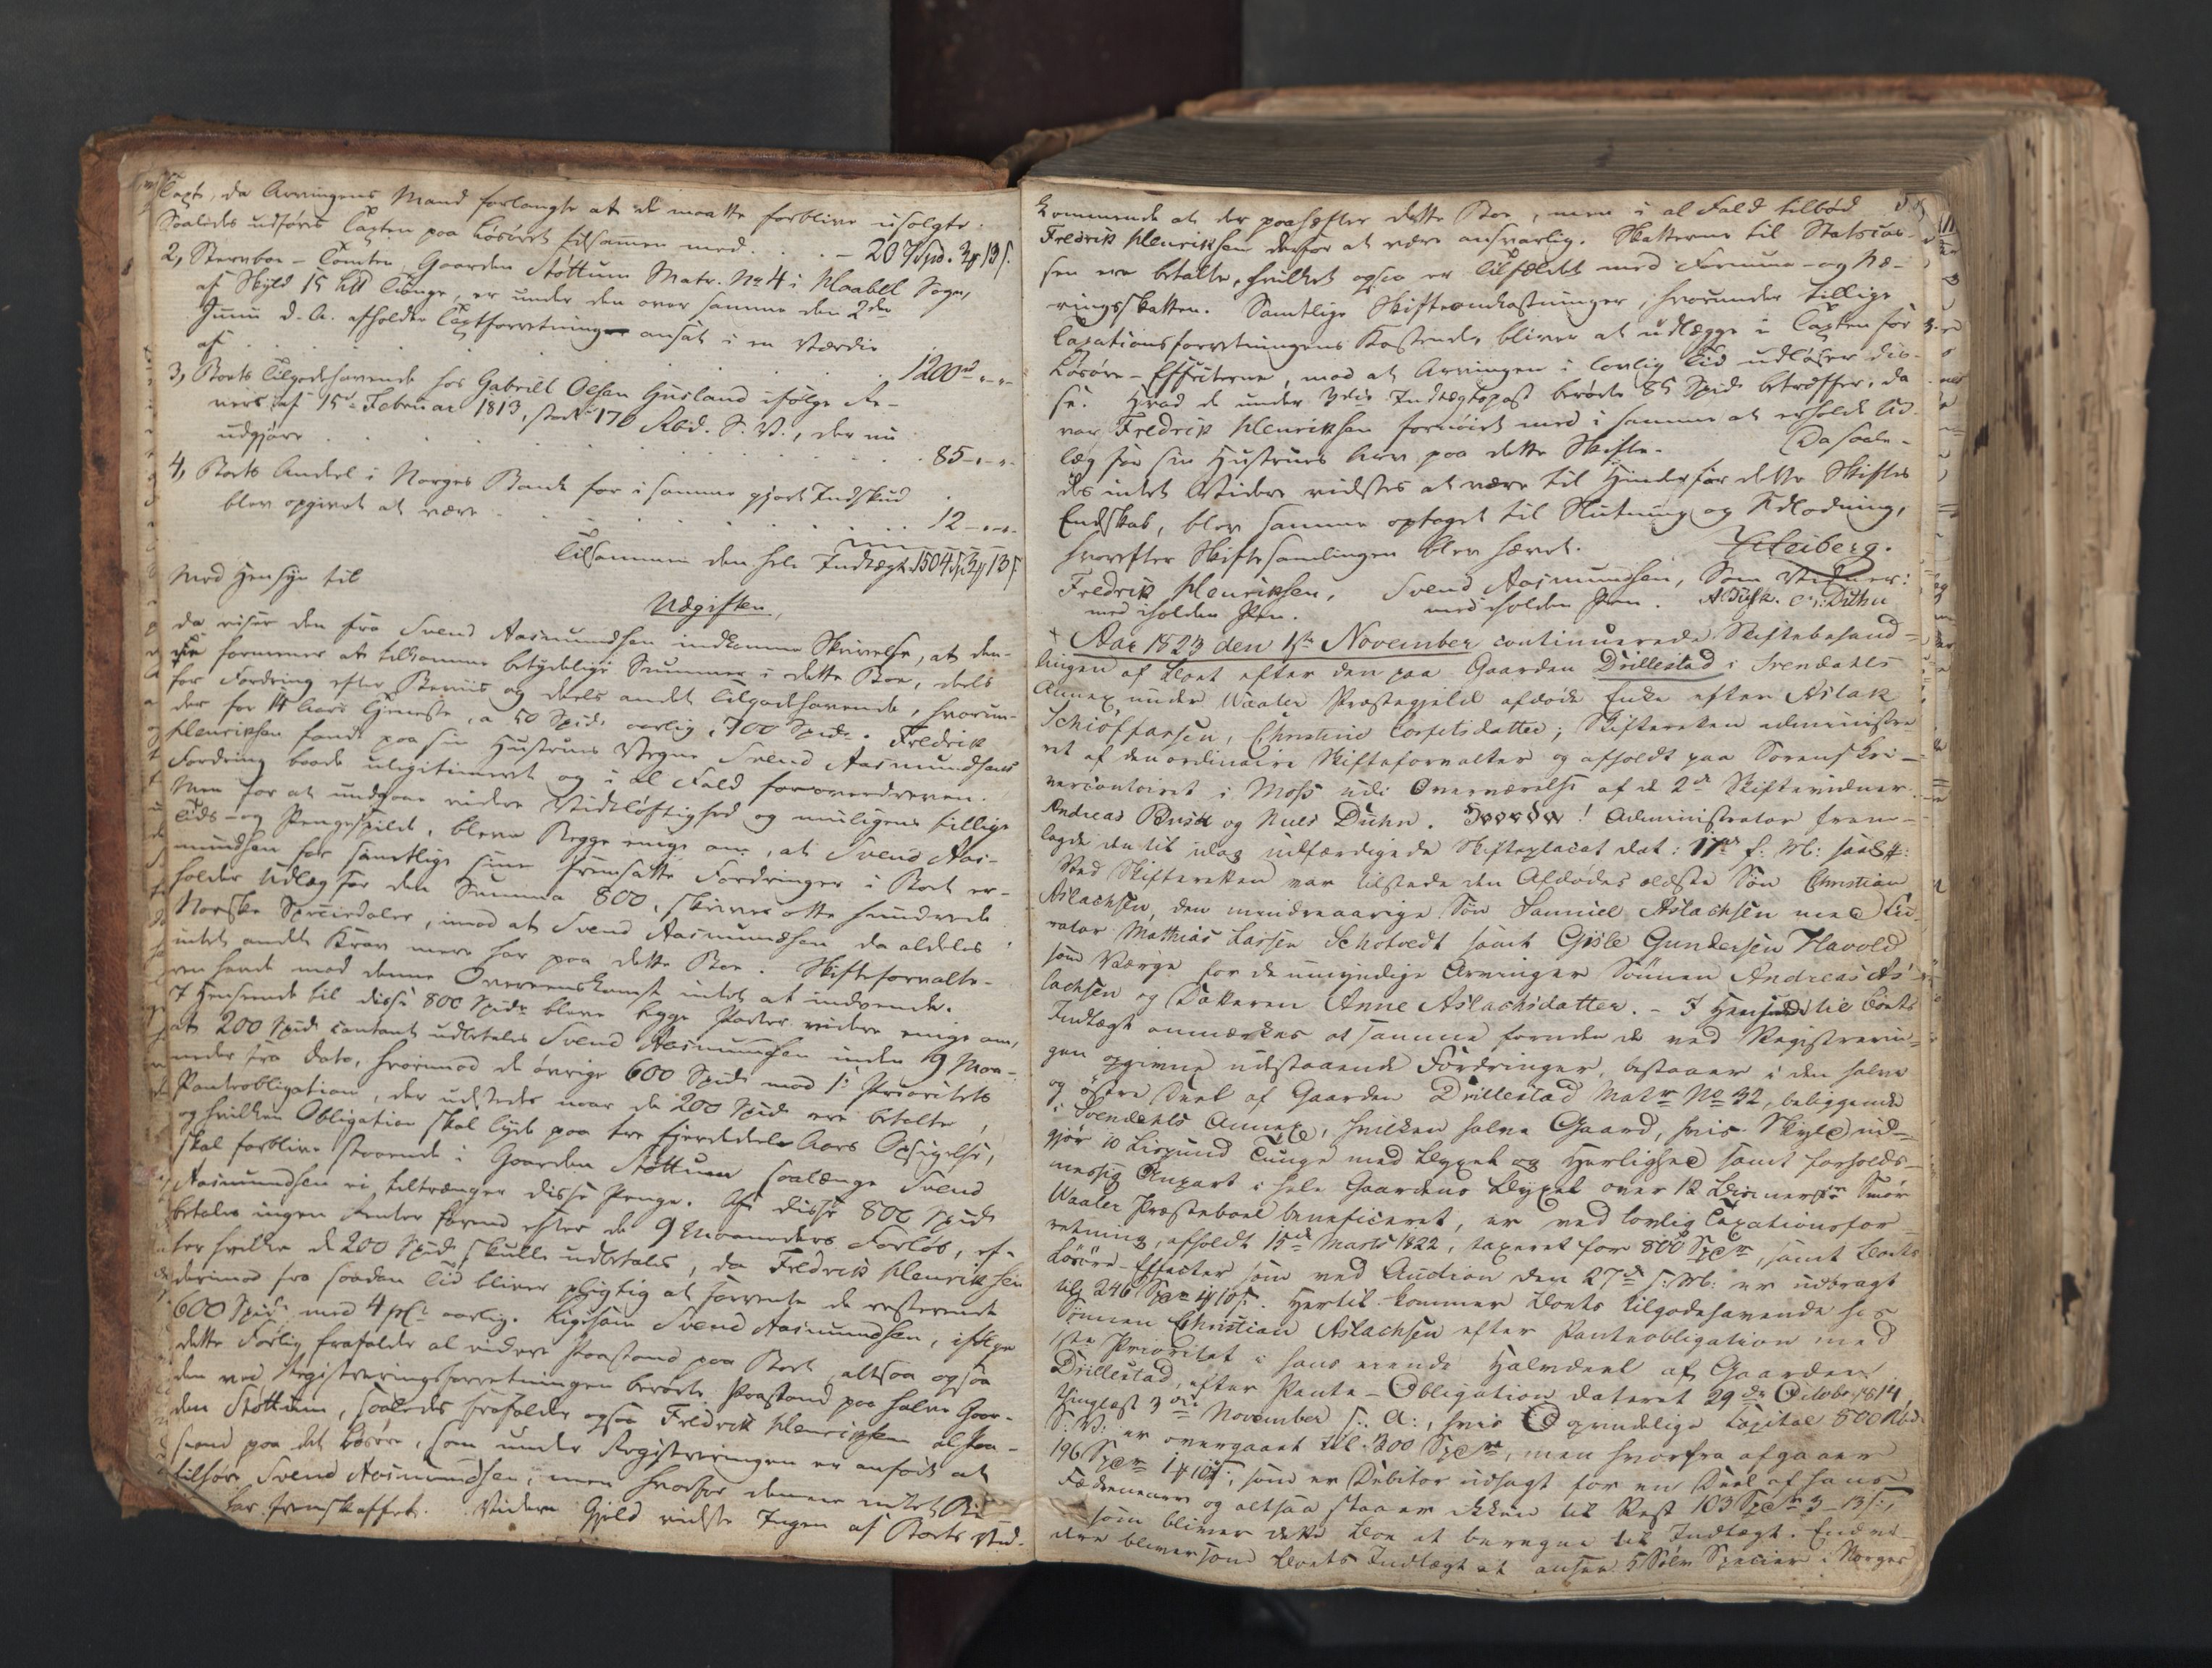 Taxt, da Arvingens Mand forlangte at de maatte forblive usolgte.
Saaledes udføres Taxten paa Løsøret tilsammen med . . . 207 Spd. 3 ₰ 13 s.
2, Stervboe-Tomten, Gaarden Støttum Matr. No 4 i Haabøl Sogn,
af Skyld 15 Lpd Tunge, er under den over samme den 2den
Junii d. A. afholdte Taxtforretning ansat i en Værdie
af . . . 1200 " " "
3, Boets Tilgodehavende hos Gabriel Olsen Huusland ifølge Re-
vers af 15de Februar 1813, stort 170 Rbd. S. V., der nu
udgjøre . . . 85 " " "
4, Boets Andeel i Norges Bank for i samme gjort Indskud
blev opgivet at være . . . 12 " " "
Tilsammen den hele Indtægt 1504 Sp 3 ₰ 13 s
Med Hensyn til
Udgiften,
da viser den fra Svend Aasmundsen indkomne Skrivelse, at den-
ne formener at tilkomme betydelige Summer i dette Boe, deels
for Fordring efter Beviis og deels andet Tilgodehavende, hvorun-
der for 14 Aars Tjeneste, a 50 Spd. aarlig, 700 Spd. Fredrik
Henriksen fandt paa sin Hustrues Vegne Svend Aasmundsens
Fordring baade ulegitimeret og i al Fald for overdreven.
Men for at undgaae videre Vidtløftighed og muligens tillige
Tids- og Pengespilde, bleve Begge enige om, at Svend Aas-
mundsen for samtlige sine fremsatte Fordringer i Boet er-
holder Udlæg for den Summa 800, skriver otte hundrede
Norske Speciedaler, imod at Svend Aasmundsen da aldeles
intet andet Krav mere har paa dette Boe. Skifteforvalte-
ren havde mod denne Overeenskomst intet at indvende.
I Henseende til disse 800 Spd. bleve begge Parter videre enige om,
at 200 Spd. contant udbetales Svend Aasmundsen inden 9 Maa-
neder fra Dato, hvorimod de øvrige 600 Spd. mod 1ste Prioritets
Panteobligation, der udstedes naar de 200 Spd. ere betalte,
og hvilken Obligation skal lyde paa tre fjerdedeele Aars Opsigelse,
skal forblive staaende i Gaarden Støttum saalænge Svend
Aasmundsen ei tiltrænger disse Penge. Af disse 800 Spd.
betales ingen Renter førend efter de 9 Maaneders Forløb, ef-
ter hvilke de 200 Spd. skulle udbetales, da Fredrik Henriksen
derimod fra saadan Tid bliver pligtig at forrente de resterende
600 Spd. med 4 pCt. aarlig. Ligesom Svend Aasmundsen, ifølge
dette Forlig frafalder al videre Paastand paa Boet, altsaa ogsaa
den ved Registreringsforretningen berørte Paastand paa halve Gaar-
den Støttum, saaledes frafalder ogsaa Fredrik Henriksen al Paa-
stand paa det Løsøre, som under Registreringen er anført at
tilhøre Svend Aasmundsen, men hvorfor denne intet Be-
har fremskaffet. Videre Gjeld vidste Ingen af Boets Ved-
kommende at der paahefter dette Boe, men i al Fald tilbød
Fredrik Henriksen derfor at være ansvarlig. Skatterne til Statscas-
sen ere betalte, hvilket ogsaa er Tilfældet med Formue- og Næ-
ringsskatten. Samtlige Skifteomkostninger, hvorunder tillige
Taxationsforretningens Kostende, bliver at udlægge i Taxten for
Løsøre-Effecterne, mod at Arvingen i lovlig Tid udløser dis-
se. Hvad de under 3die Indtægtspost berørte 85 Spd. betræffer, da
var Fredrik Henriksen fornøiet med i samme at erholde Ud-
læg for sin Hustrues Arv paa dette Skifte. Da saale-
des intet Videre vidstes at være til Hinder for dette Skiftes
Endskab, blev samme optaget til Slutning og Udlodning,
hvorefter Skiftesamlingen blev hævet. Heiberg.
Fredrik Henriksen, Svend Aasmundsen, Som Vidner:
med iholden Pen. med iholden Pen. A. Busk. N. Duhn
Aar 1823 den 1ste November continuerede Skiftebehand-
lingen af Boet efter den paa Gaarden Drillestad i Svendahls
Annex under Waaler Præstegjeld afdøde Enke efter Aslak
Schioffersen, Christine Torfelsdatter; Skifteretten administre-
ret af den ordinaire Skifteforvalter og afholdt paa Sorenskri-
vercontoiret i Moss udi Overværelse af de 2de Skiftevidner
Andreas Busk og Niels Duhn. Administrator frem-
lagde den til idag udfærdigede Skifteplacat dat: 17de f: M: saal:
Ved Skifteretten var tilstede den Afdødes ældste Søn Christian
Aslachsen, den mindreaarige Søn Samuel Aslachsen med Cu-
rator Mathias Larsen Schotvedt samt Gisle Gundersen Havold
som Værge for de umyndige Arvinger Sønnen Andreas As-
lachsen og Datteren Anne Aslachsdatter. - I Henseende til Boets
Indtægt anmærkes at samme foruden de ved Registrerin-
gen opgivne udestaaende Fordringer, bestaaer i den halve
og østre Deel af Gaarden Drillestad Matr No 32, beliggende
i Svendahls Annex, hvilken halve Gaard, hvis Skyld ud-
gjør 10 Lispund Tunge med Bygsel og Herlighed samt forholds-
mæssig Anpart i hele Gaardens Bygsel over 12 Smør
Waaler Præsteboel beneficeret, er ved lovlig Taxationsfor-
retning, afholdt 15de Marts 1822, taxeret for 800 Spdr, samt Boets
Løsøre-Effecter som ved Auction den 27de s: M: er udbragt
til 246 Spdr 4 ₰ 10 s. Hertil kommer Boets tilgodehavende hos
Sønnen Christian Aslachsen efter Panteobligation med
1ste Prioritet i hans eiende Halvdeel af Gaarden
Drillestad, efter Pante-Obligation dateret 29de October 1814,
thinglæst 3die November s: A:, hvis Oprindelige Capital 800 Rbd
S. V: er overgaaet til 300 Spdr, men hvorfra afgaaer
196 Spdr 1 ₰ 10 s, som er Debitor udlagt for en Deel af hans
Fædrenearv og altsaa staaer ikkun til Rest 103 Spdr 3 - 13 s,
som bliver dette Boe at beregne til Indtægt. End vi-
dere bliver som Boets Indtægt at ansee 5 Sølv Specier i Norges